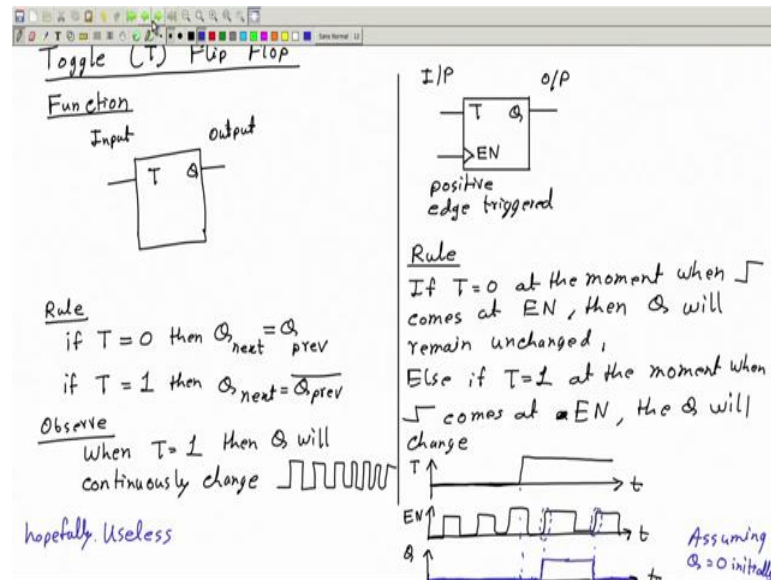 Toggle (T) Flip Flop
Function
Input
Output
T Q
Rule
if T = 0 then Qnext = Qprev
if T = 1 then Qnext = \overline{Qprev}
Observe
When T=1 then Q will
continuously change
hopefully. Useless
I/P
O/P
T Q
EN
positive
edge triggered
Rule
If T=0 at the moment when
comes at EN, then Q will
remain unchanged,
Else if T=1 at the moment when
comes at EN, the Q will
change
T
t
EN
t
Q
Assuming
Q=0 initially